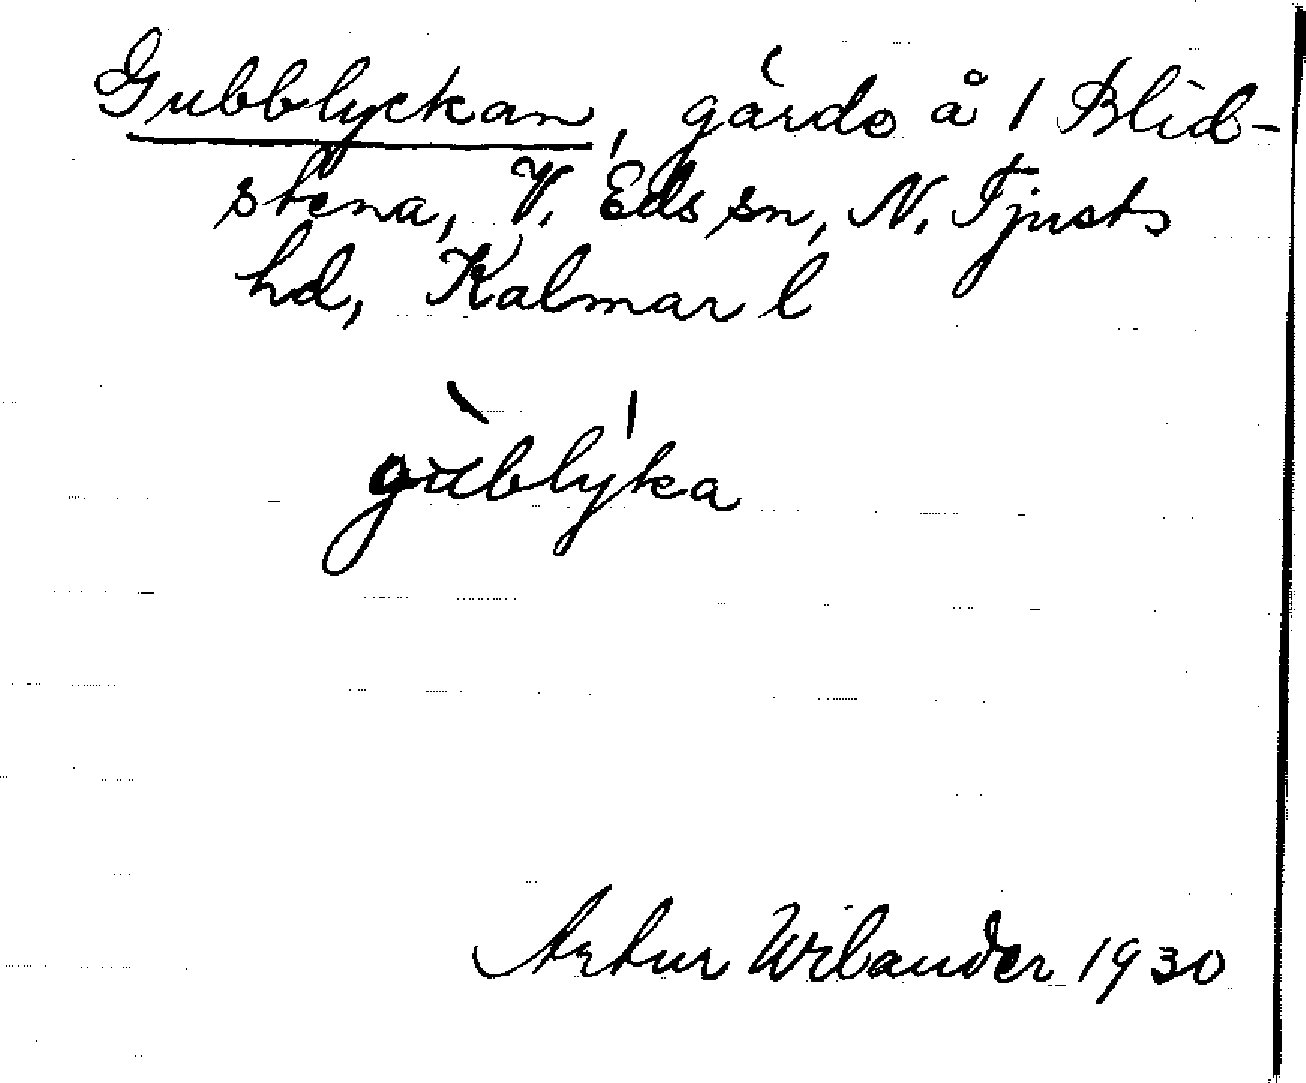 Gubblyckan, gärde å 1 Blid-
stena, V. Eds sn, N. Tjusts
hd, Kalmar l
gùblýka
Artur Wilander 1930